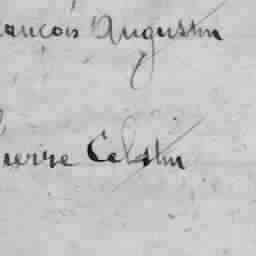 rançois Augustin
Pierre Celestin